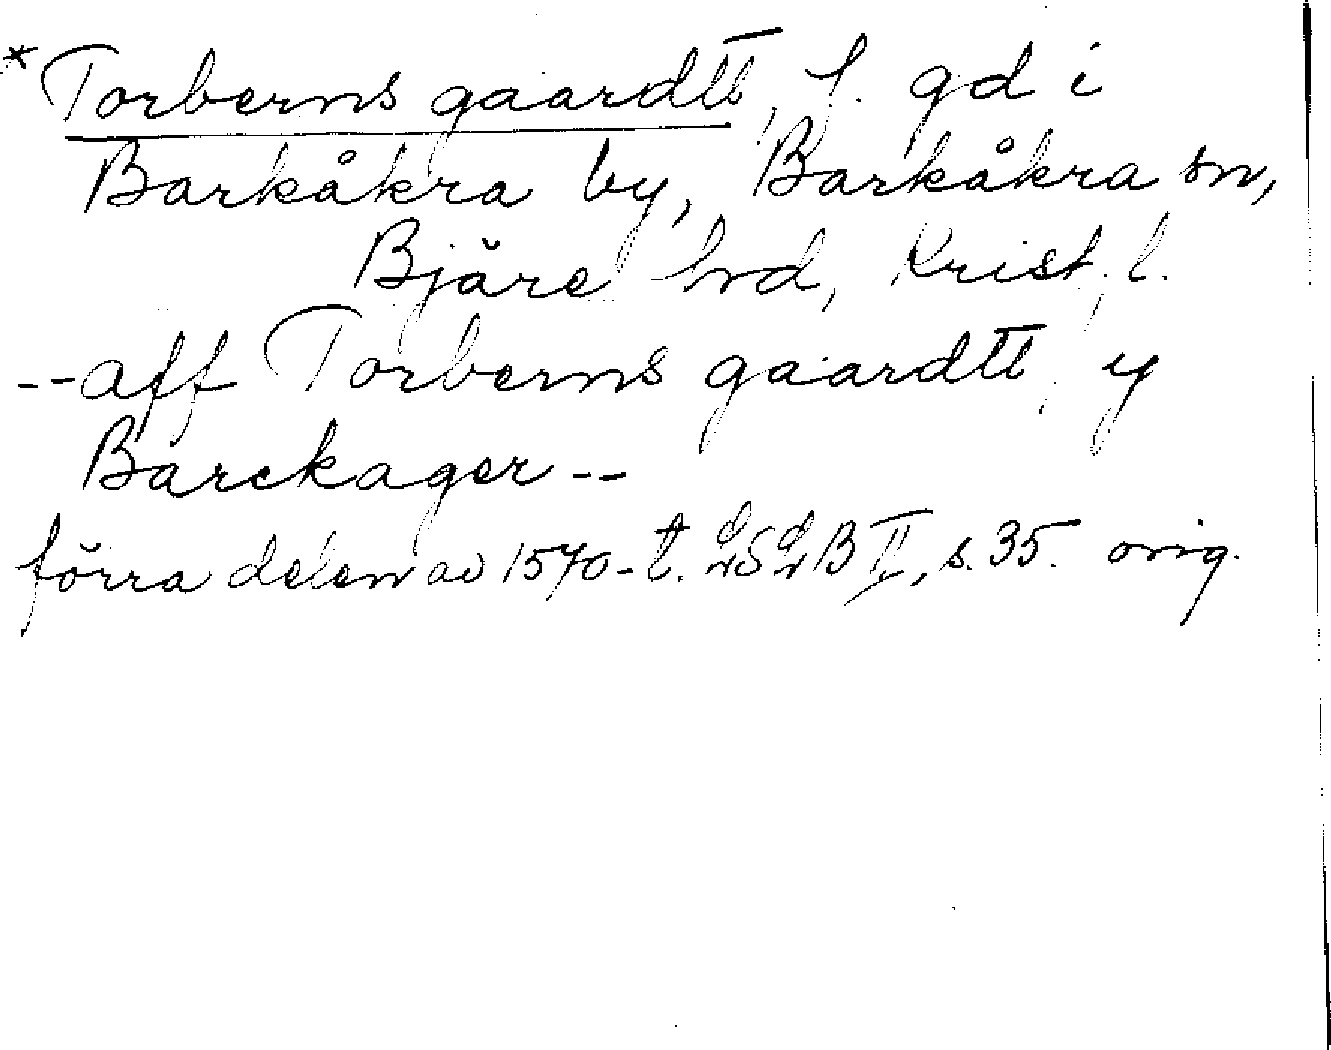 *Torberns gaardtt, f. gd i
Barkåkra by, Barkåkra sn,
Bjäre hd, Krist. l.
--aff Torberns gaardtt y
Barckager--
förra delen av 1570-t. LSLB II, s. 35. orig.